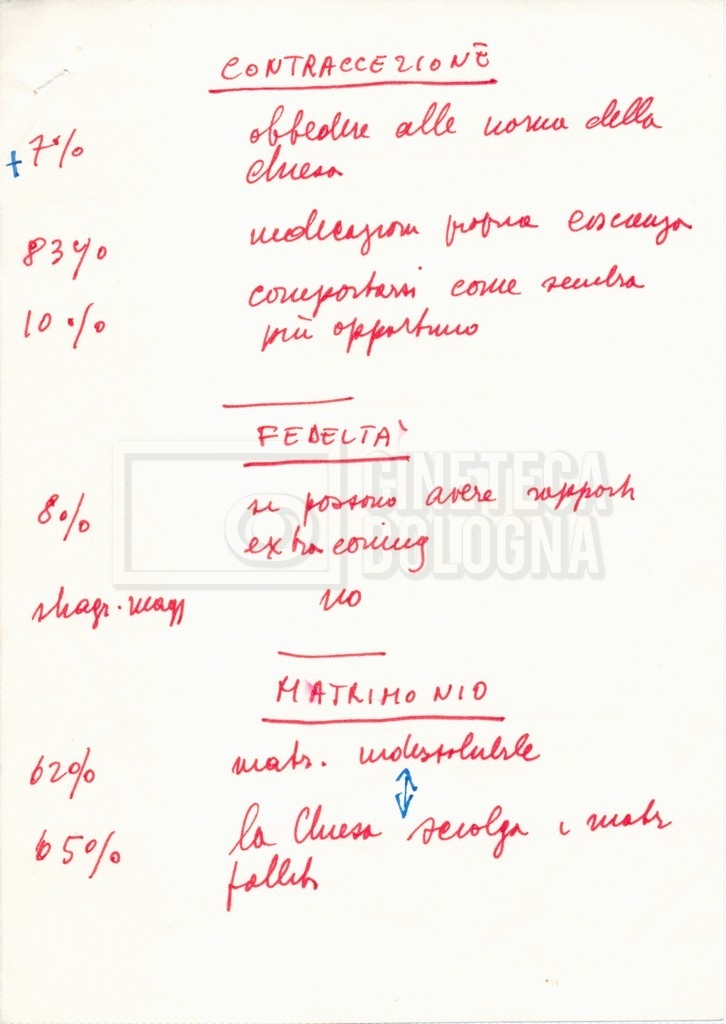 CONTRACCEZIONE
+ 7% obbedire alle norme della
chiesa
83% indicazioni propria coscienza
10% comportarsi come sembra
più opportuno
FEDELTA'
8% si possono avere rapporti
extraconiug
CINETECA
BOLOGNA
stragr. magg no
MATRIMONIO
62% matr. indissolubile
65% la Chiesa sciolga i matr
falliti